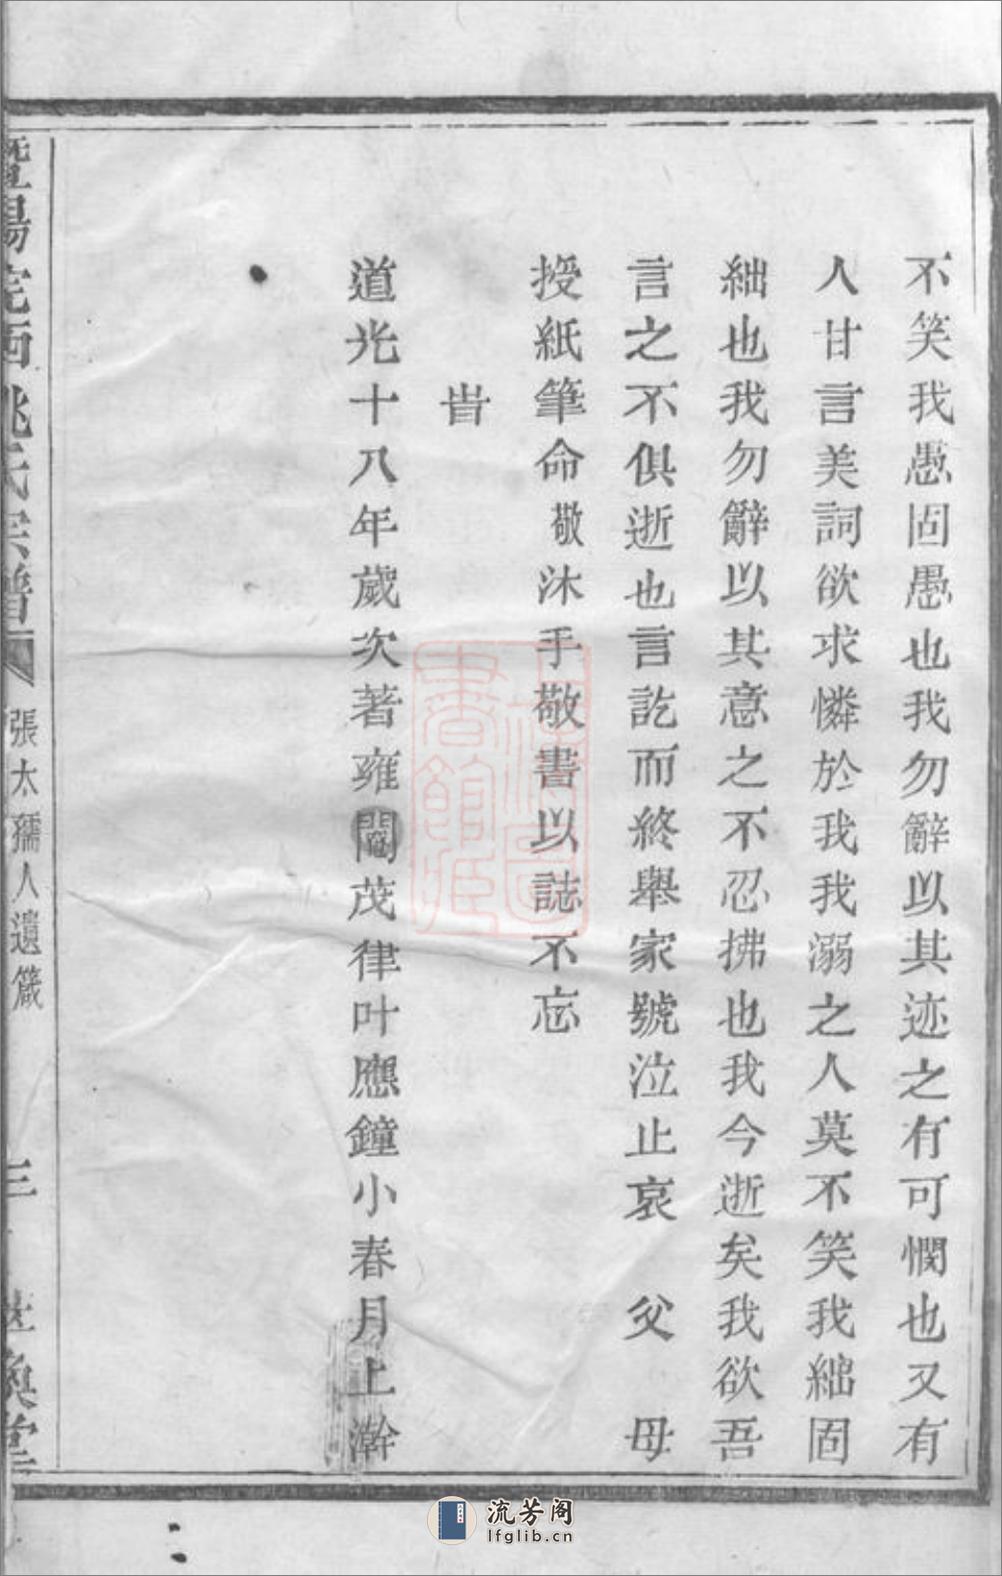 不笑我愚固愚也我勿辭以其迹之有可憫也又有
人甘言美詞欲求憐於我我溺之人莫不笑我絀固
絀也我勿辭以其意之不忍拂也我今逝矣我欲吾
言之不俱逝也言訖而終舉家號泣止哀 父 母
授紙筆命敬沐手敬書以誌不忘
旹
道光十八年歲次著雍閹茂律叶應鐘小春月上澣
暨陽宅西姚氏宗譜 張太孺人遺箴 三
流芳阁
lfglib.cn